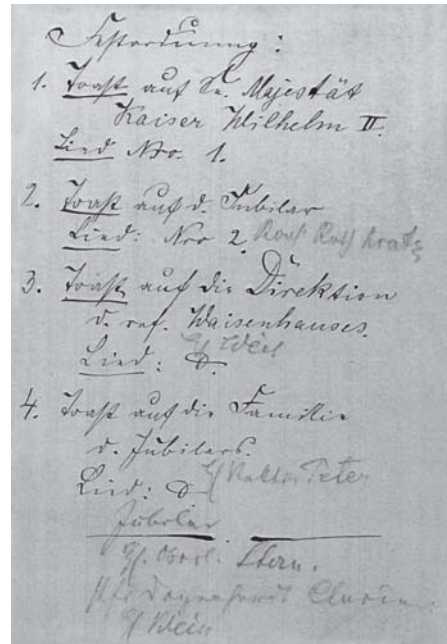 Festordnung:
1. Toast auf Sr. Majestät
Kaiser Wilhelm II.
Lied Nro. 1.
2. Toast auf d. Jubilar
Lied: Nro 2.
3. Toast auf die Direktion
d. ref. Waisenhauses.
Lied:
4. Toast auf die Familie
d. Jubilars.
Lied: Rektor Peter
Jubilar
Oberl. Stern.
Klein